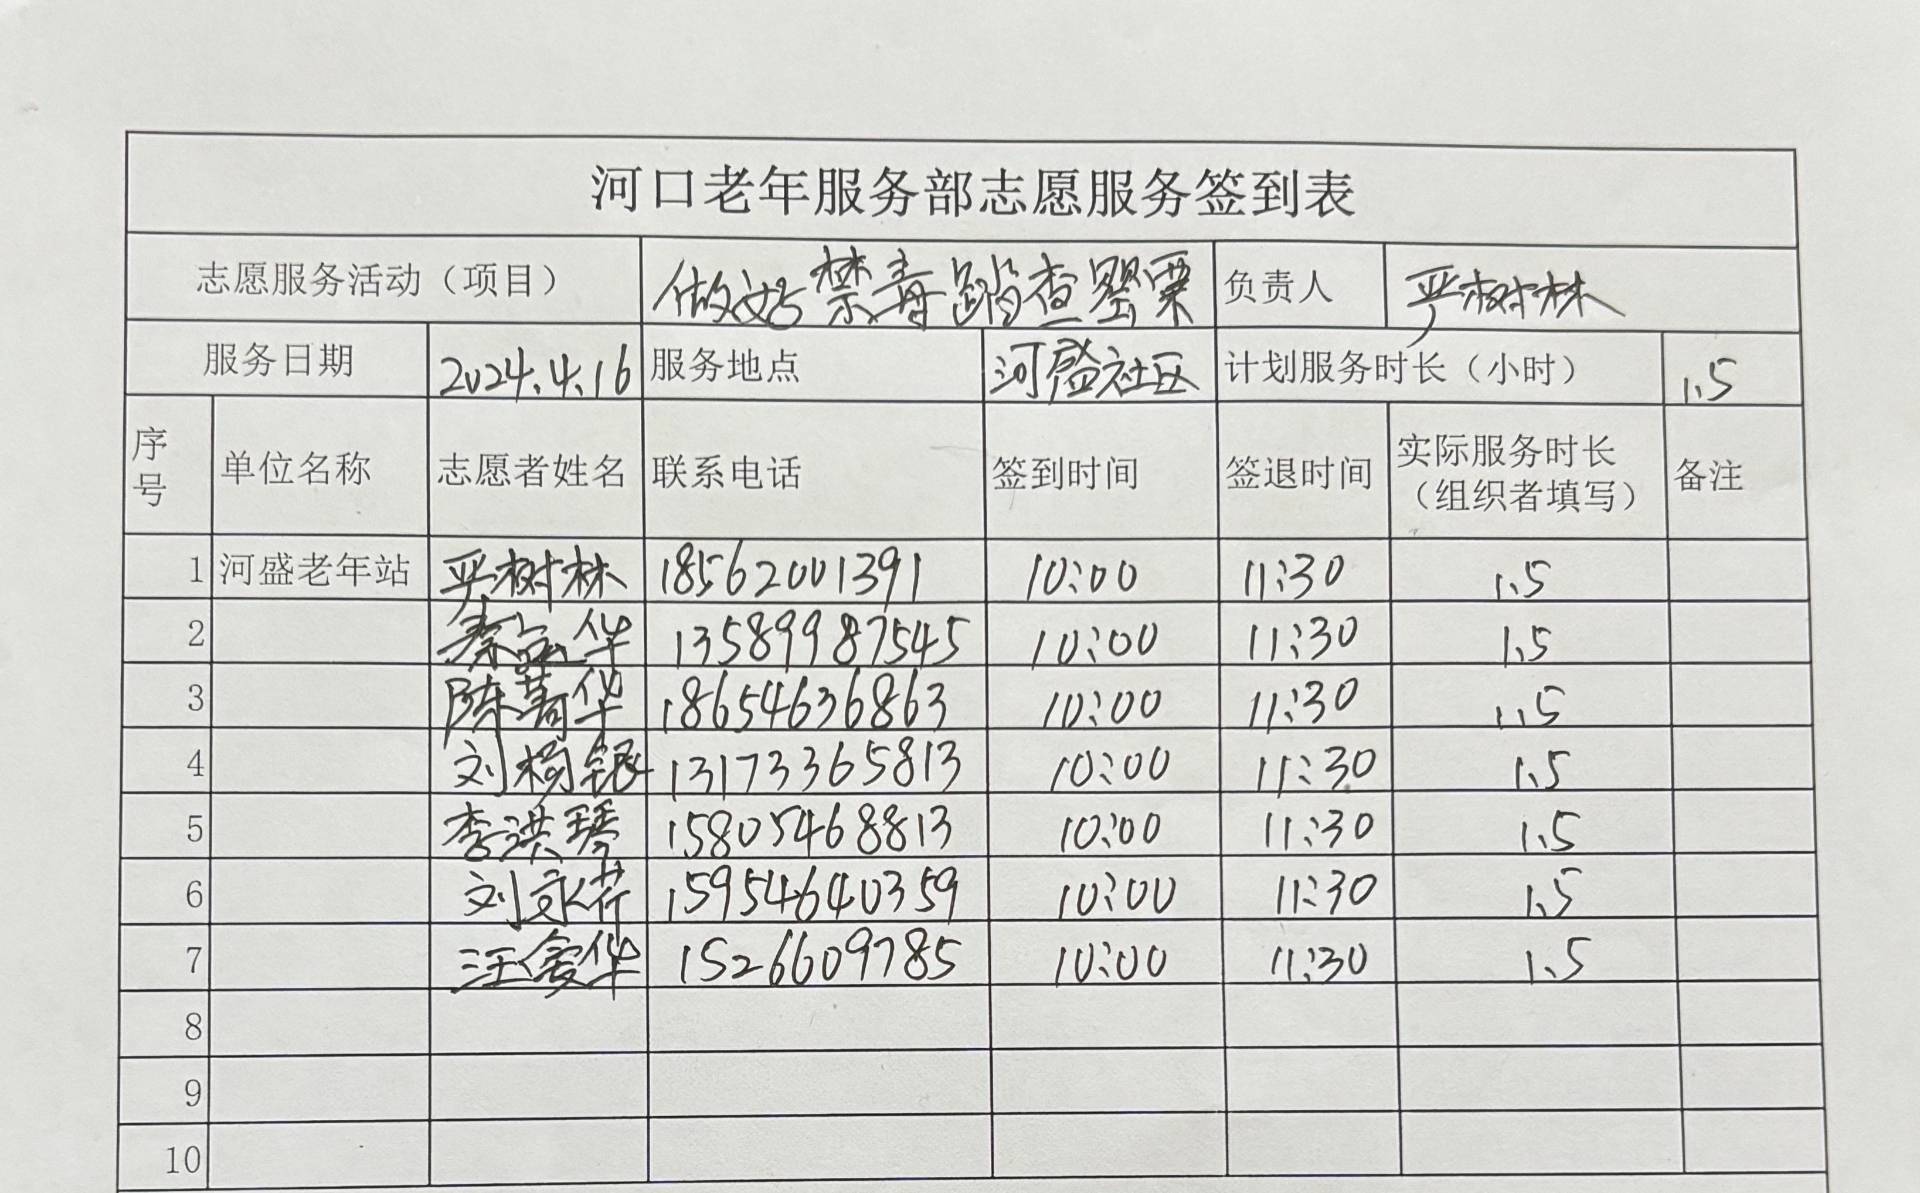 河口老年服务部志愿服务签到表
志愿服务活动（项目） 做好禁毒踏查罂粟 负责人 严树林
服务日期 2024.4.16 服务地点 河盛社区 计划服务时长（小时） 1.5
序号 单位名称 志愿者姓名 联系电话 签到时间 签退时间 实际服务时长（组织者填写） 备注
1 河盛老年站 严树林 18562001391 10:00 11:30 1.5
2 秦宝华 13589987545 10:00 11:30 1.5
3 陈菁华 18654636863 10:00 11:30 1.5
4 刘杨银 13173365813 10:00 11:30 1.5
5 李洪琴 15805468813 10:00 11:30 1.5
6 刘永芹 15954640359 10:00 11:30 1.5
7 汪爱华 15266097785 10:00 11:30 1.5
8
9
10